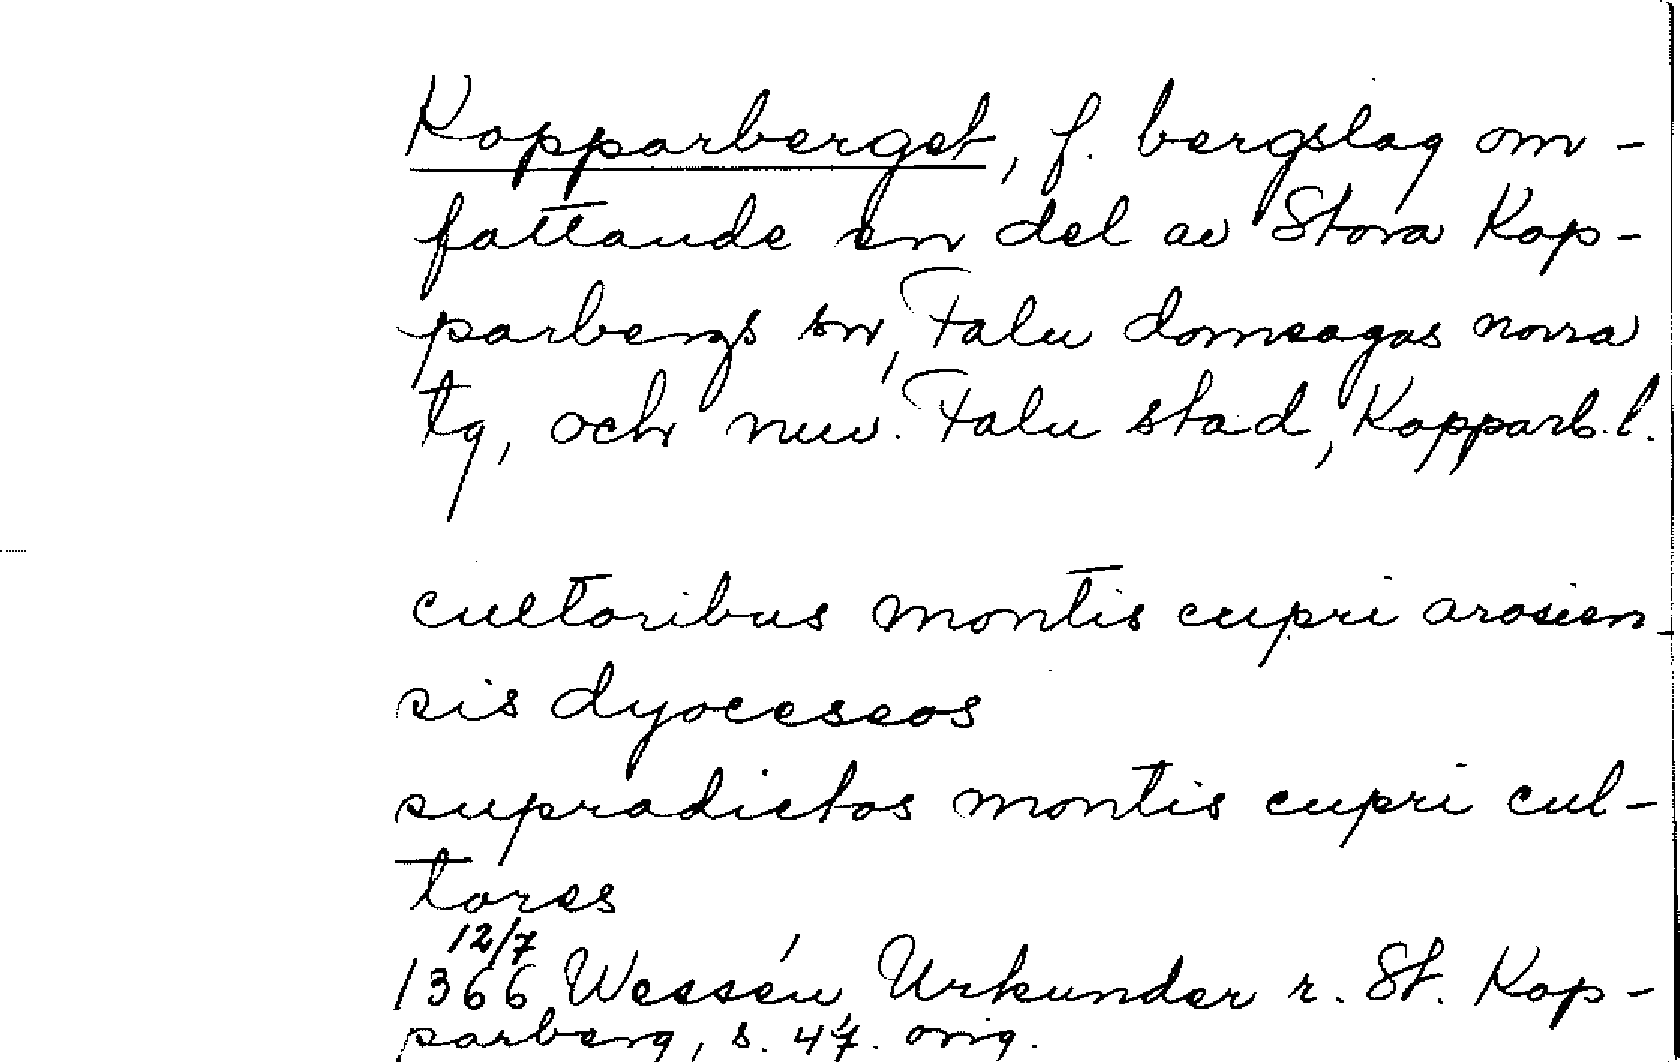 Kopparberget, f. bergslag om-
fattande en del av Stora Kop-
parbergs sn, Falu domsagas norra
tg, och nuv. Falu stad, Kopparb. l.
cultoribus montis cupri arosien-
sis dyoceseos
supradictos montis cupri cul-
tores
12/7
1366 Wessén, Urkunder r. St. Kop-
parberg, s. 47. orig.